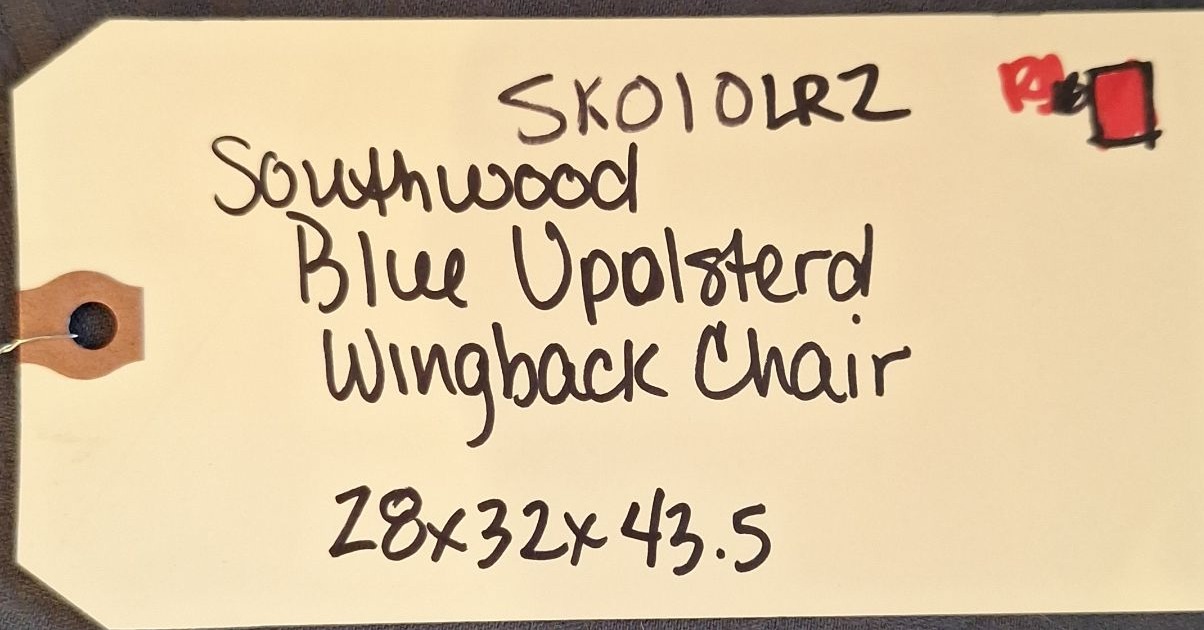 SK010LR2
Southwood
Blue Upolsterd
Wingback Chair
28x32x43.5